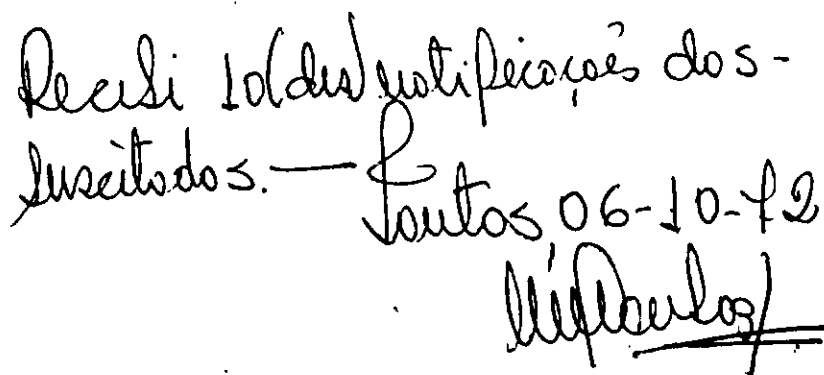 Recebi 10(dez) notificações dos-
suscitados.—
Santos, 06-10-72